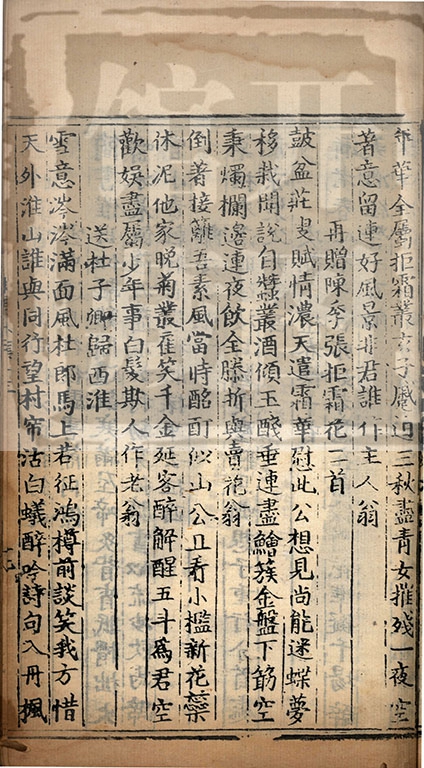 華全屬拒霜叢子三秋盡青女摧殘一夜空
著意留連好風景非君誰作主人翁
再贈陳季張拒霜花二首
鼓盆莊叟賦情濃天遣霜華慰此公想見尚能迷蝶夢
移栽聞說自蠶叢酒傾玉醆垂連盡鱠簇金盤下筯空
秉燭欄邊連夜飲全勝折與賣花翁
倒著接籬吾素風當時酩酊似山公且看小檻新花蘂
休泥他家晚菊叢雇笑千金延客醉解酲五斗爲君空
歡娛盡屬少年事白髮欺人作老翁
送杜子卿歸西淮
雪意涔涔滿面風杜郎馬上若征鴻樽前談笑我方惜
天外淮山誰與同行望村帘沽白蟻醉吟詩句入丹楓